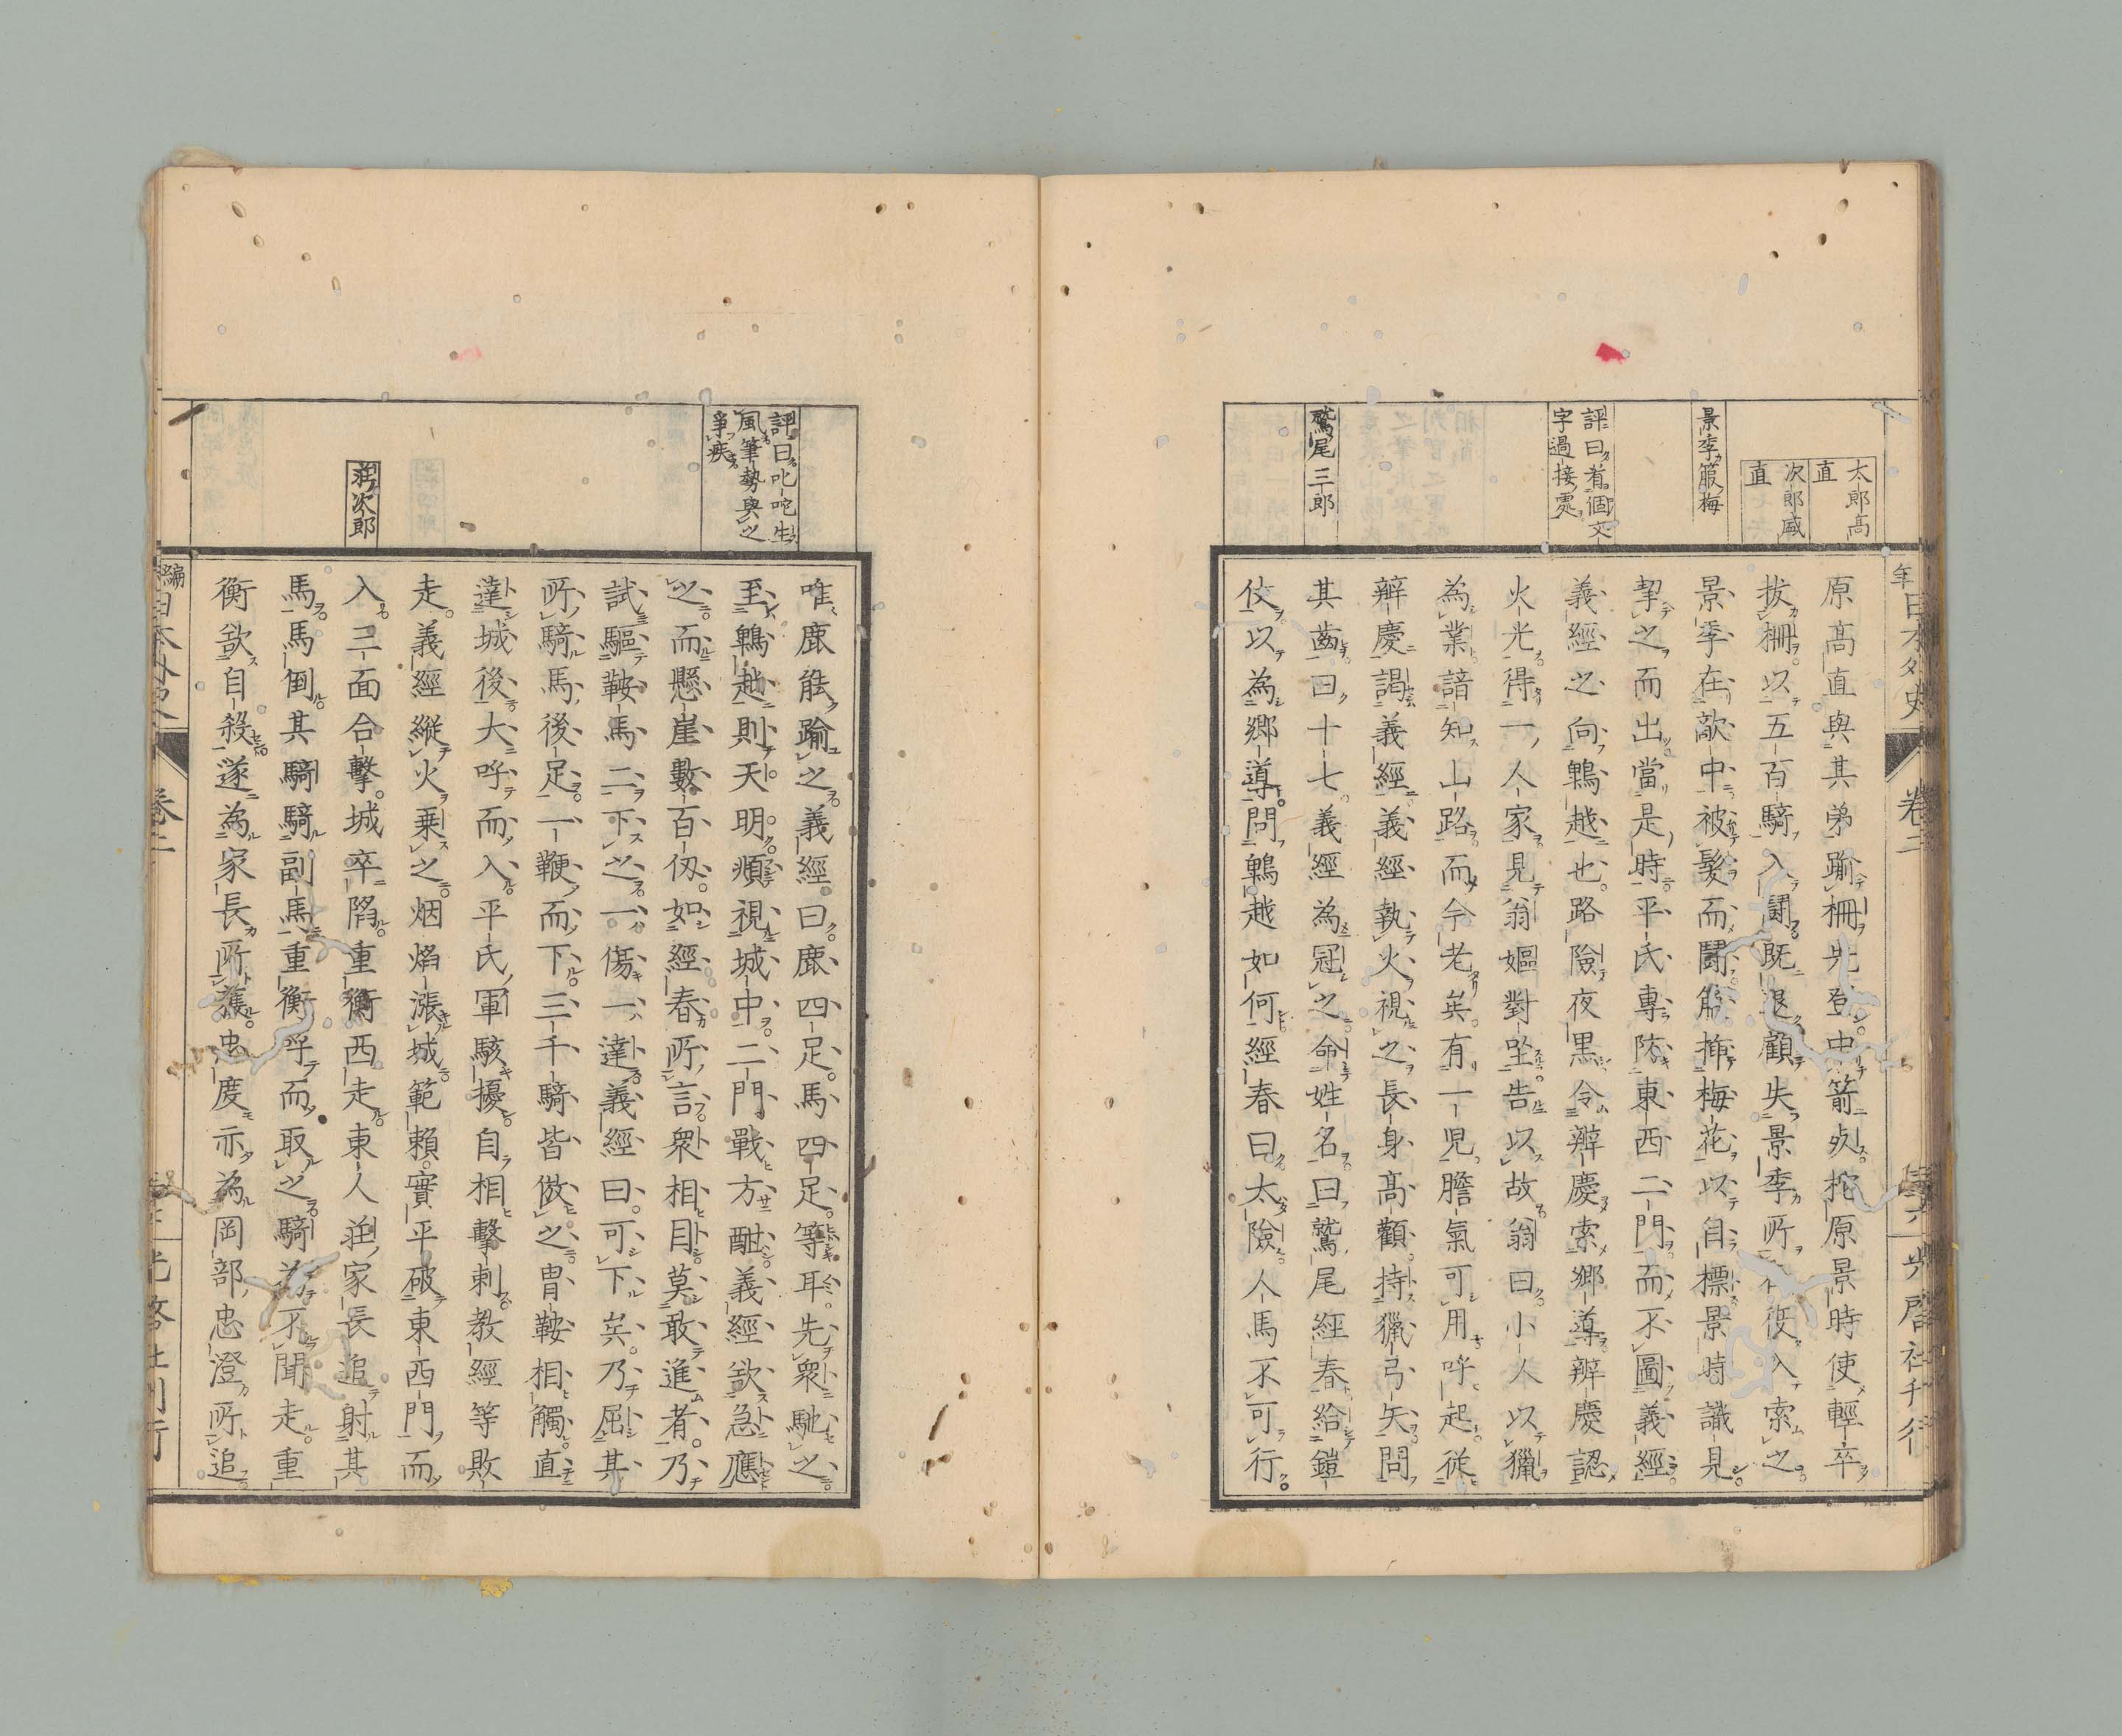 太郎高
直
次郎盛
直
景季箙梅
評曰看個文
字過接處
鷲尾三郎
年日本外史
卷二
光啓社刊行
原高直與其弟踰柵先登中箭死梶原景時使輕卒
拔柵以五百騎入鬪既退顧失景季所在復入索之
景季在敵中被髮而鬪箙揷梅花以自標景時識見
挈之而出當是時平氏專防東西二門而不圖義經
義經之向鵯越也路險夜黒令辨慶索郷導辨慶認
火光得一人家見翁嫗對坐告以故翁曰小人以獵
為業諳知山路而今老矣有一児膽氣可用呼起従
辨慶謁義經義經執火視之長身高顴持獵弓矢問
其齒曰十七義經為冠之命姓名曰鷲尾經春給鎧
仗以為郷導問鵯越如何經春曰太險人馬不可行
評曰叱咤生
風筆勢與之
爭疾
莊次郎
唯鹿能踰之義經曰鹿四足馬四足等耳先衆馳之
至鵯越則天明頫視城中二門戰方酣義經欲急應
之而懸崖數百仭如經春所言衆相目莫敢進者乃
試驅鞍馬二下之一傷一達義經曰可下矣乃屈其
所騎馬後足一鞭而下三千騎皆倣之冑鞍相觸直
達城後大呼而入平氏軍駭擾自相擊刺教經等敗
走義經縱火乗之烟焰漲城範賴實平破東西門而
入三面合擊城卒陷重衡西走東人莊家長追射其
馬馬倒其騎騎副馬重衡呼而取之騎為不聞走重
衡欲自殺遂為家長所獲忠度亦為岡部忠澄所追
編日本外史
卷二
光啓社刊行